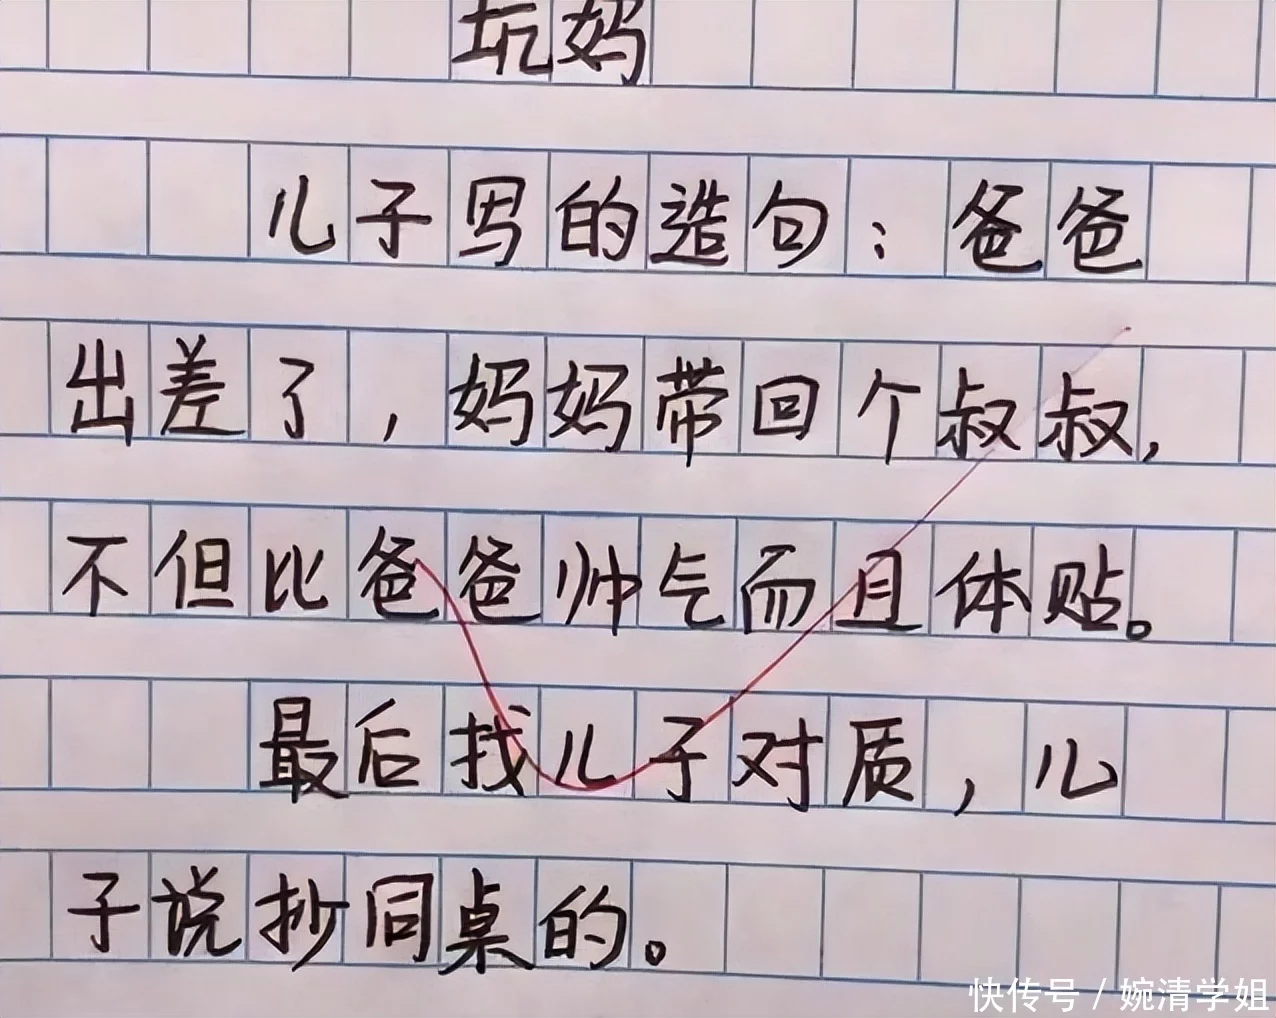 坑妈
儿子写的造句：爸爸
出差了，妈妈带回个叔叔，
不但比爸爸帅气而且体贴。
最后找儿子对质，儿
子说抄同桌的。
快传号 / 婉清学姐